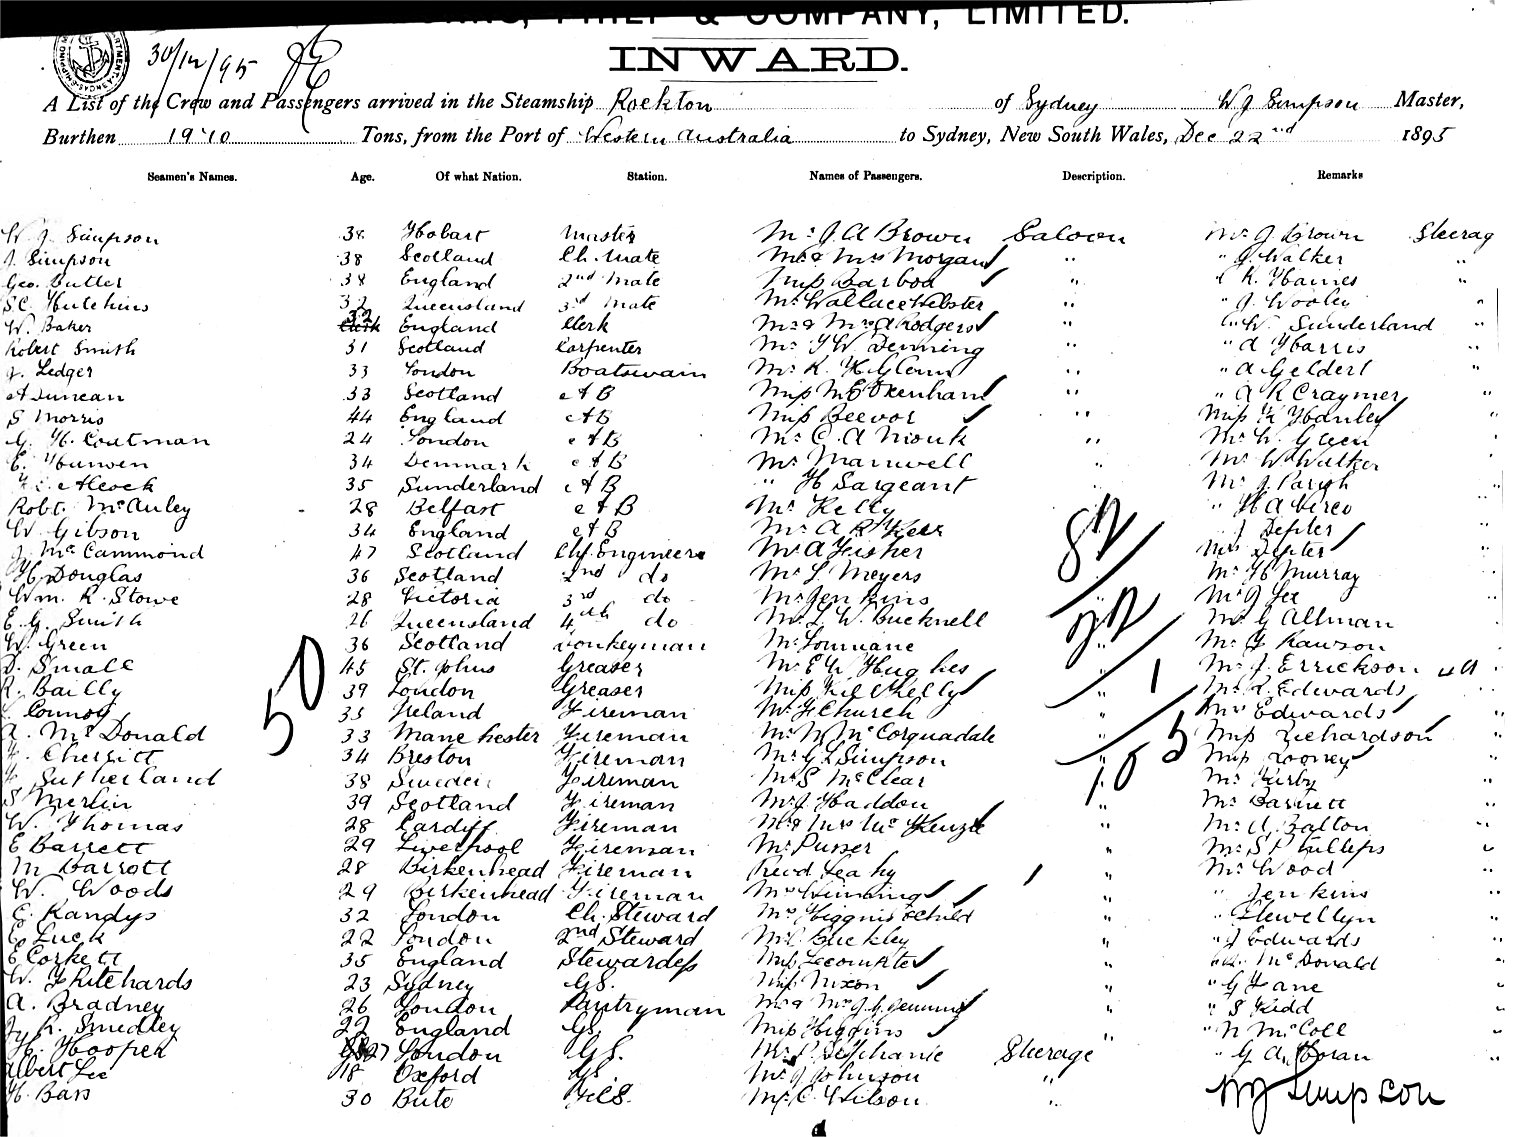 & COMPANY, LIMITED.
INWARD.
30/12/95
A List of the Crew and Passengers arrived in the Steamship Rockton of Sydney W J Simpson Master,
Burthen 1970 Tons, from the Port of Western Australia to Sydney, New South Wales, Dec 22nd 1895
Seamen's Names. Age. Of what Nation. Station. Names of Passengers. Description. Remarks
W. J. Simpson 38 Hobart Master Mr J A Brown Saloon Mr J Brown Steerag
J. Simpson 38 Scotland Ch. Mate Mr & Mrs Morgan " " J. Walker "
Geo. Butler 38 England 2nd Mate Miss " " R. Haines "
S.C. Hutchins 32 Queensland 3rd Mate Mr Wallace Webster " " J. Wooley "
W. Baker 32 England Clerk Mr & Mrs A Rodgers " " W. Sunderland "
Robert Smith 31 Scotland Carpenter Mr Denning " " A Harris "
J. Ledger 33 London Boatswain Mr R. K. Glenn " " A Geldert "
A Duncan 33 Scotland AB Miss " " A R Craymer "
S Morris 44 England AB Miss Beevor " Miss K Hanley "
G. H. Coatman 24 London AB Mr C. A Monk " Mr W. Green "
E. 34 Denmark AB Mr Manwell " Mr W Walker "
Alcock 35 Sunderland AB " H Sargeant " Mr J. Parish "
Robt. McAuley 28 Belfast AB Mr Kelly 82 " H A Virco "
W. Gibson 34 England AB Mr A R Kerr " J "
J. McCammond 47 Scotland Chf. Engineer Mr A Fisher Mrs "
H. Douglas 36 Scotland 2nd do Mr L Meyers Mr H Murray "
Wm. R. Stowe 28 Victoria 3rd do Mr Jenkins " Mr J Lee "
E. G. Smith 26 Queensland 4th do Mr L. W. Bucknell 22 Mr G Allman "
W. Green 36 Scotland Donkeyman Mr Mr Rawson "
D. Small 45 St. Johns Greaser Mr E W Hughes " Mr J. Errickson "
R. Bailly 39 London Greaser Miss Kelly " 1 Mr R. Edwards "
Connoy 35 Ireland Fireman Mr Church " Mrs Edwards "
50
A. McDonald 33 Manchester Fireman Mr McCorquadale " Miss Richardson "
Cherritt 34 Breston Fireman Mr G L Simpson 105 Miss Rooney "
Sutherland 38 Sweden Fireman Mr S McClear Mr Kirby "
S Merlin 39 Scotland Fireman Mr J Haddon " Mr Barnett "
W. Thomas 28 Cardiff Fireman Mr & Mrs McKenzie " Mr A. Balton "
E Barrett 29 Liverpool Fireman Mr Purser " Mr S Phillips "
M Barrott 28 Birkenhead Fireman Revd Leahy " Mr Wood "
W. Woods 29 Birkenhead Fireman Mrs " " Jenkins "
E. Randys 32 London Ch. Steward Mrs Higgins & child " " Llewellyn "
E. Luck 22 London 2nd Steward Mr Buckley " " J Edwards "
E Corkett 35 England Stewardess Miss Lecompte " McDonald "
W. F Ritchards 23 Sydney GS. Miss Nixon " " G Lane "
A. Bradney 26 London Pantryman Mr & Mrs " " S Kidd "
J. R. Smedley 22 England GS. Miss Higgins " " N McColl "
H. Hooper 27 London GS. Mr Stephanie Steerage " G A Horan "
Albert Lee 18 Oxford GS. Mr J Johnson "
H. Bass 30 Bute Mr C. Wilson "
W J Simpson